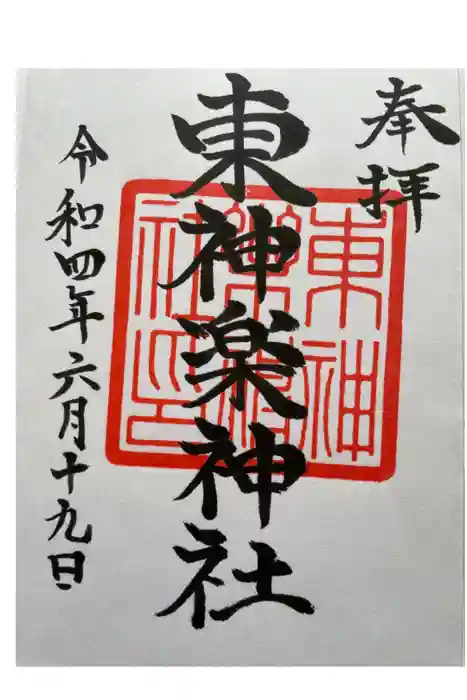 奉拝
東神楽神社
令和四年六月十九日
東神
楽神
社印